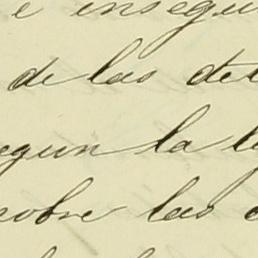 e insegu
de las de
egun la l
sobre las